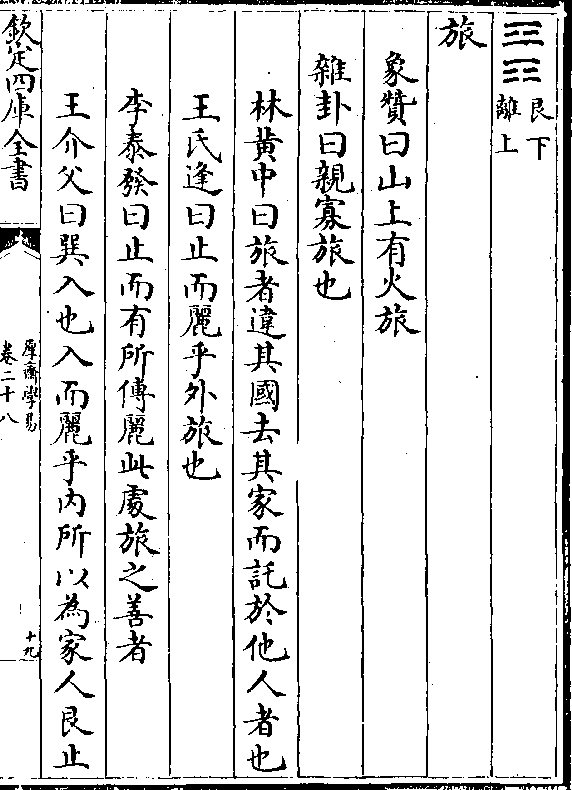 ☶☲艮下離上
旅
象贊曰山上有火旅
雜卦曰親寡旅也
林黃中曰旅者違其國去其家而託於他人者也
王氏逢曰止而麗乎外旅也
李泰發曰止而有所傅麗此處旅之善者
王介父曰巽入也入而麗乎内所以為家人艮止
欽定四庫全書
厚齋學易
卷二十八
十九